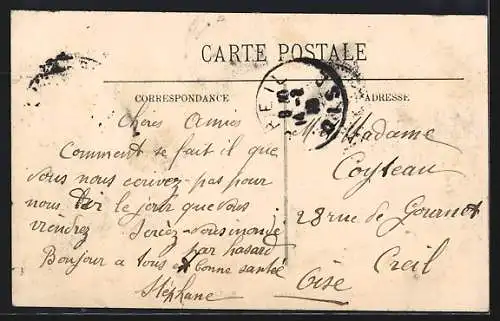 CARTE POSTALE
CORRESPONDANCE
ADRESSE
Chères Amies
Comment se fait il que
vous nous ecrivez pas pour
nous le jour que vous
viendrez Seriez-vous
par hasard
Bonjour a tous & bonne santée
Stéphane
Madame
Coyteau
28 rue de Gournet
Creil
Oise